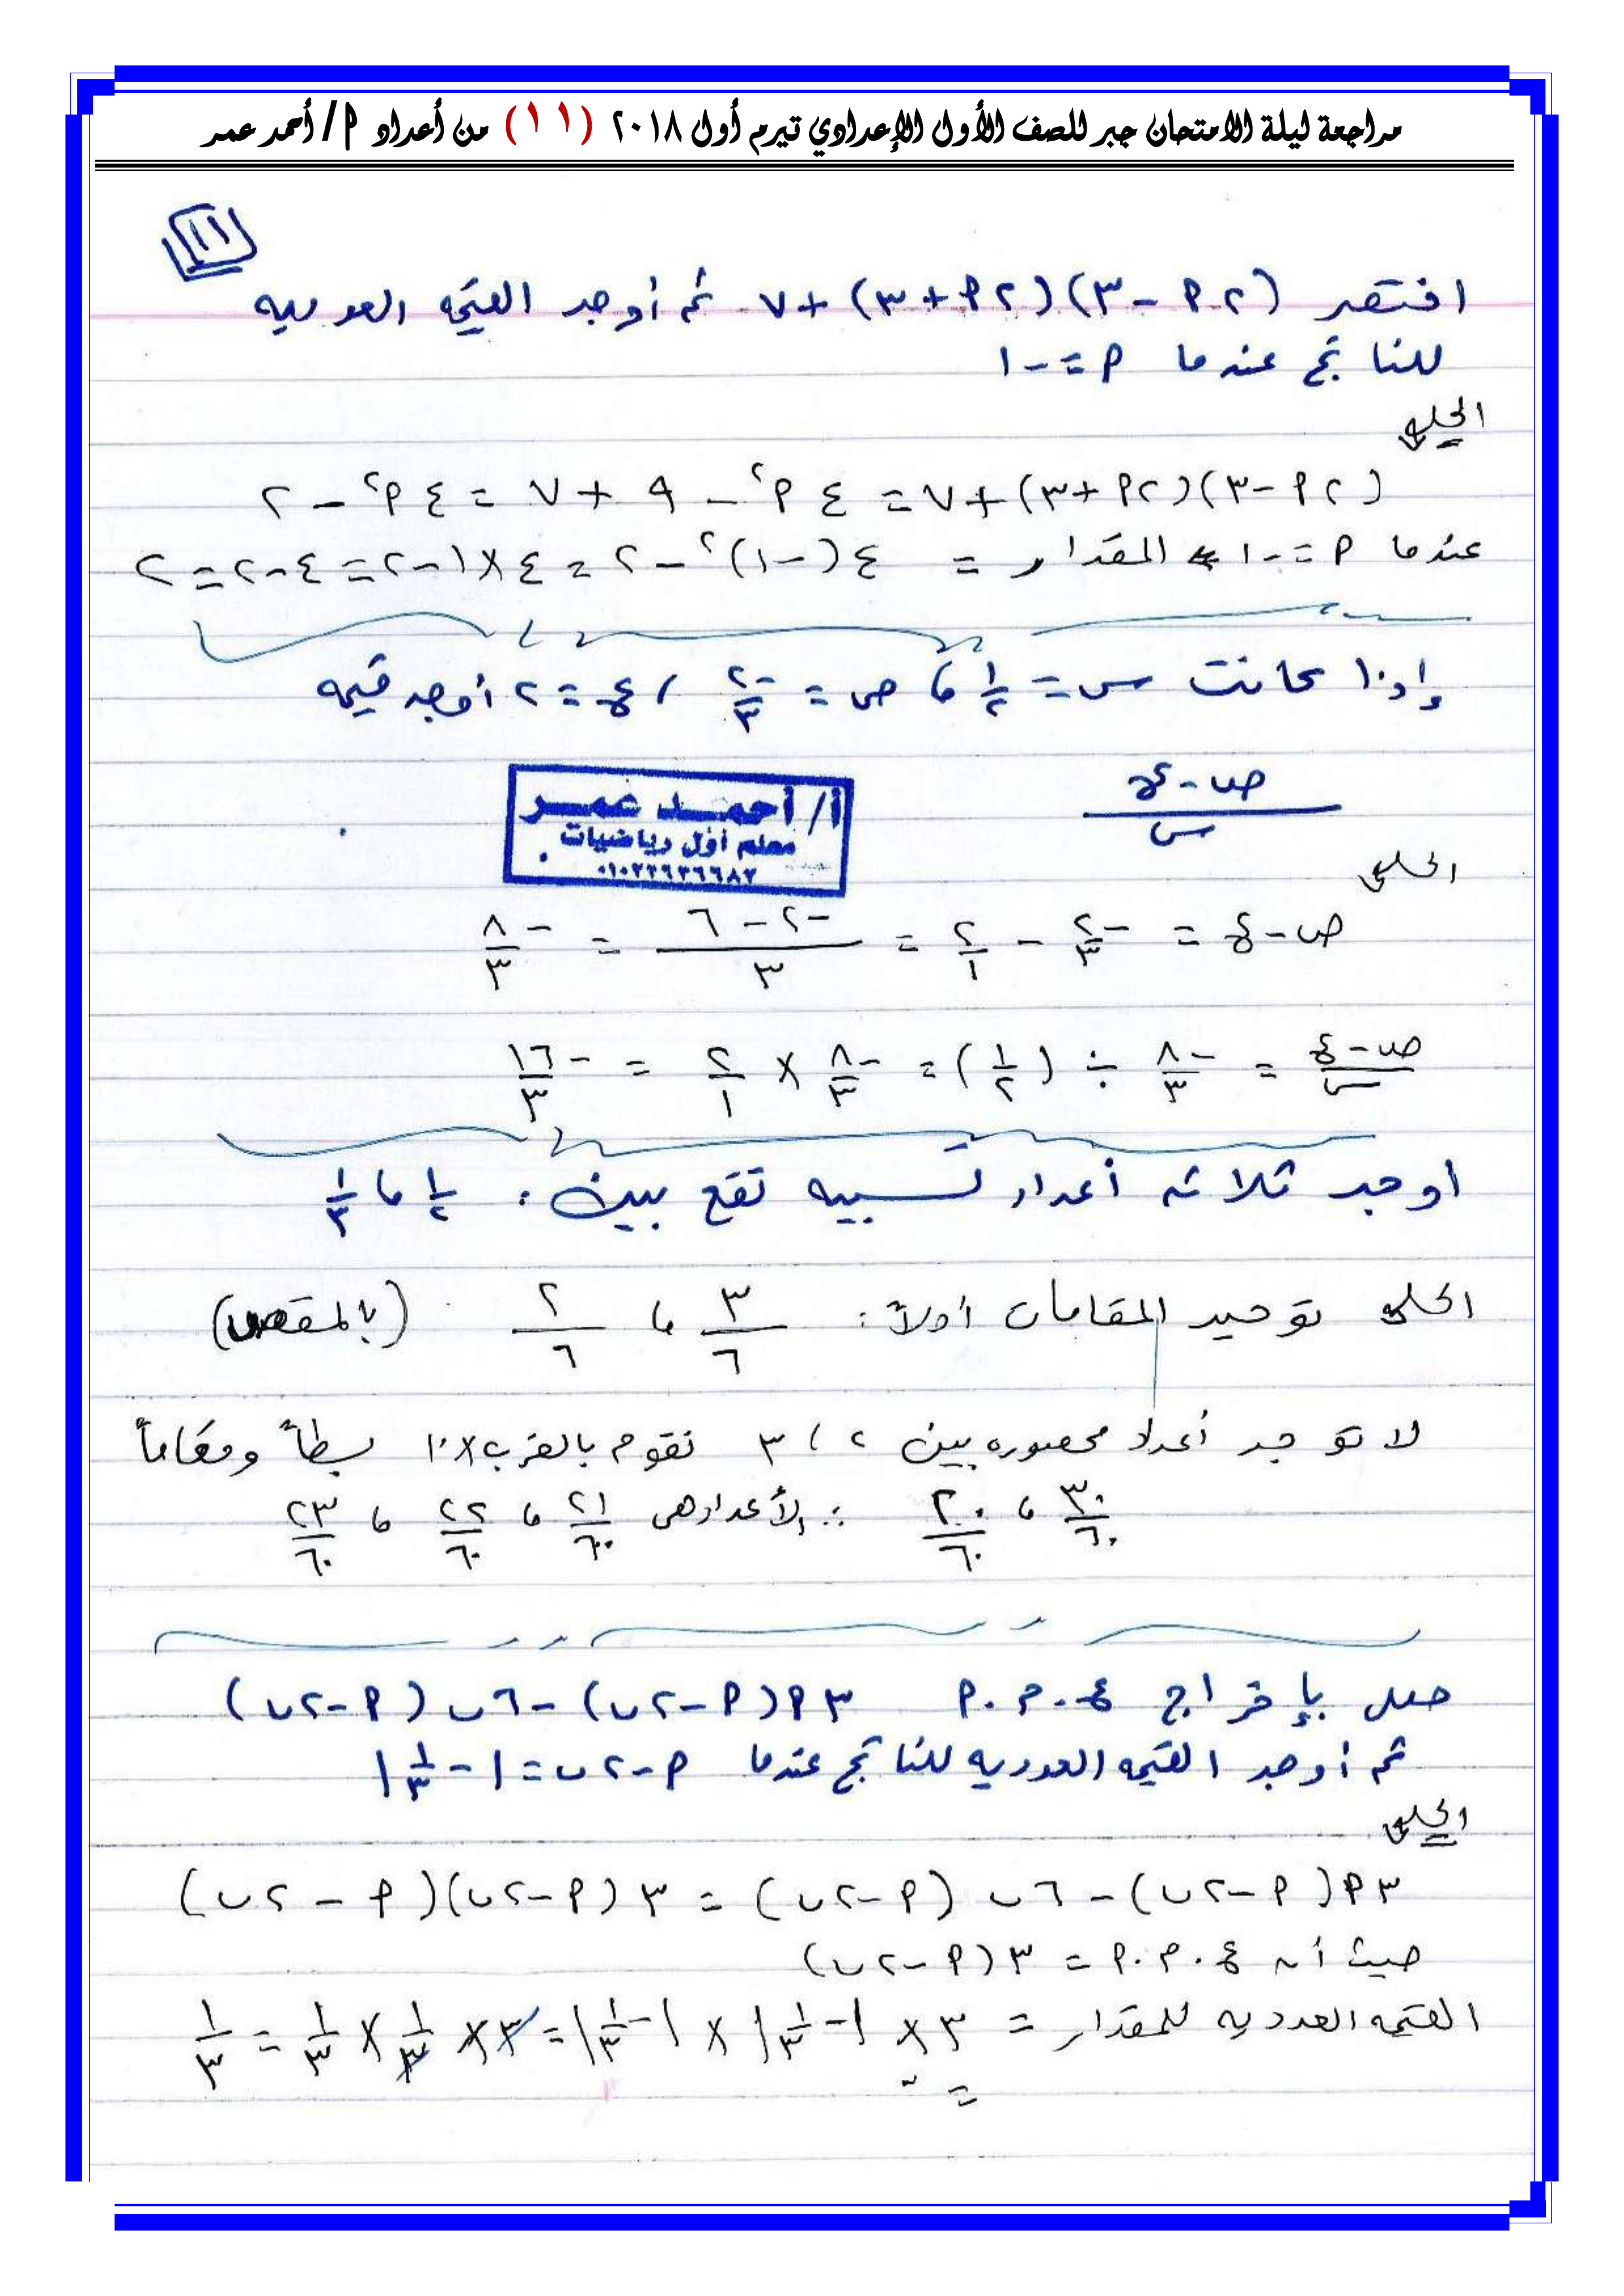 مراجعة ليلة الامتحان جبر للصف الأول الإعدادي تيرم أول ٢٠١٨ (١١) من أعداد أ / أحمد عمر
١١
اختصر (٢أ - ٣)(٢أ + ٣) + ٧ ثم أوجد القيمة العددية
للناتج عندما أ = -١
الحل
(٢أ - ٣)(٢أ + ٣) + ٧ = ٤أ٢ - ٩ + ٧ = ٤أ٢ - ٢
عندما أ = -١ المقدار = ٤(-١)٢ - ٢ = ٤×١ - ٢ = ٤ - ٢ = ٢
وإذا كانت س = ١/٢ ، ص = -٢/٣ ، ع = ٢ أوجد قيمه
(ص - ع)/س
أ/ أحمد عمر
معلم أول رياضيات
الحل
ص - ع = -٢/٣ - ٢/١ = (-٢ - ٦)/٣ = -٨/٣
(ص - ع)/س = -٨/٣ ÷ (١/٢) = -٨/٣ × ٢/١ = -١٦/٣
اوجد ثلاثه أعداد نسبيه تقع بين : ١/٢ ، ١/٣
الحل توحيد المقامات أولاً : ٣/٦ ، ٢/٦ (بالمقص)
لا توجد أعداد محصوره بين ٢ ، ٣ نقوم بالضرب ×١٠ بسطاً ومقاماً
٣٠/٦٠ ، ٢٠/٦٠ ∴ الأعداد هى ٢١/٦٠ ، ٢٢/٦٠ ، ٢٣/٦٠
حلل بإخراج ع.م.أ ٣أ(أ - ٢ب) - ٦ب(أ - ٢ب)
ثم أوجد القيمه العدديه للناتج عندما أ - ٢ب = |-١/٣|
الحل
٣أ(أ - ٢ب) - ٦ب(أ - ٢ب) = ٣(أ - ٢ب)(أ - ٢ب)
حيث أن ع.م.أ = ٣(أ - ٢ب)
القيمه العدديه للمقدار = ٣ × |-١/٣| × |-١/٣| = ٣ × ١/٣ × ١/٣ = ١/٣